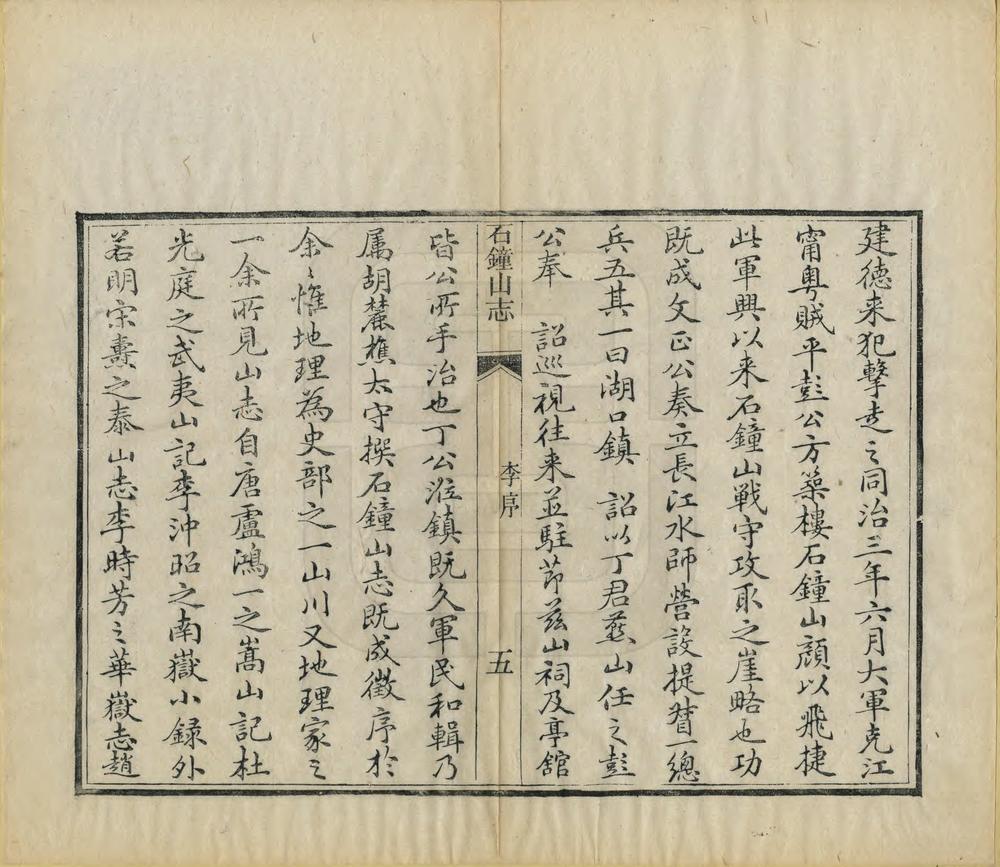 建德来犯擊走之同治三年六月大軍克江
甯粵賊平彭公方築樓石鐘山顏以飛捷
此軍興以来石鐘山戰守攻取之崖略也功
既成文正公奏立長江水師營設提督一總
兵五其一曰湖口鎮　詔以丁君燕山任之彭
公奉　詔巡視往来並駐茆茲山祠及亭舘
石鐘山志
李序
五
皆公所手治也丁公涖鎮既久軍民和輯乃
属胡蔗樵太守撰石鐘山志既成徵序扵
余〻惟地理為史部之一山川又地理家之
一余所見山志自唐盧鴻一之嵩山記杜
光庭之武夷山記李沖昭之南嶽小録外
若明宋燾之泰山志李時芳之華嶽志趙